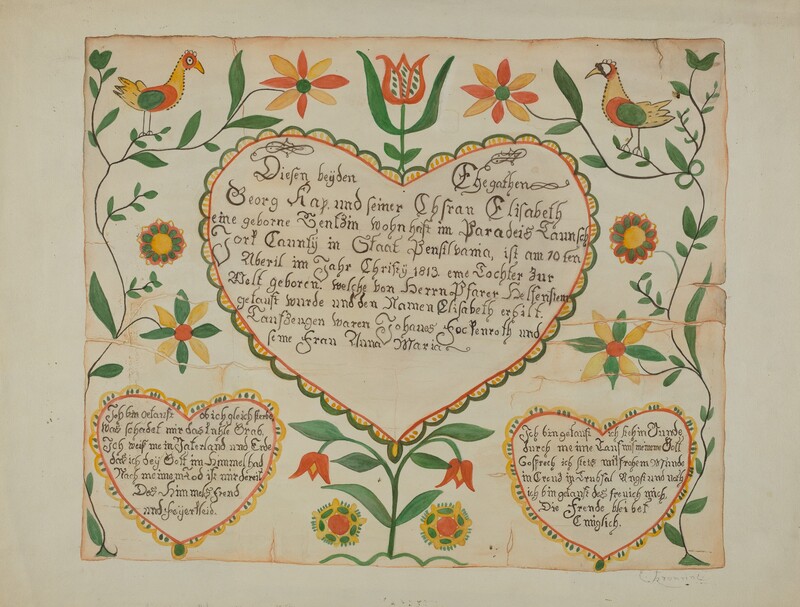 Diesen beyden Ehegathen
Georg Kap. und seiner Ehfran Elisabeth
eine geborne wohnhaft im Paradeis Taunsch
York Caunty in Staat Pensilvania, ist am 10 ten
Aberil im Jahr Christy 1813 eine Tochter zur
Welt geboren, welche von Herrn Pfarer Helfenstein
getauft wurde und den Namen Elisabeth erhilt.
Taufzeugen waren Johanes Fockenroth und
seine Fran Anna Maria
Ich bin getauft ob ich gleich sterbe
was schadet mir das kühle Grab.
Ich weiß mein Vaterland und Erbe
das ich bey Gott im Himmel hab
Nach meinem Tod ist mir bereit
Des Himmels Frend
und Feyerkleid.
Ich bin getauft ich steh in Bunde
durch meine Tauf mit meinem Gott
So sprech ich stets mit frohem Munde
in Creuz in Trubsal Angst und noth
ich bin getauft des freu ich mich,
Die Frende bleibet
Ewiglich.